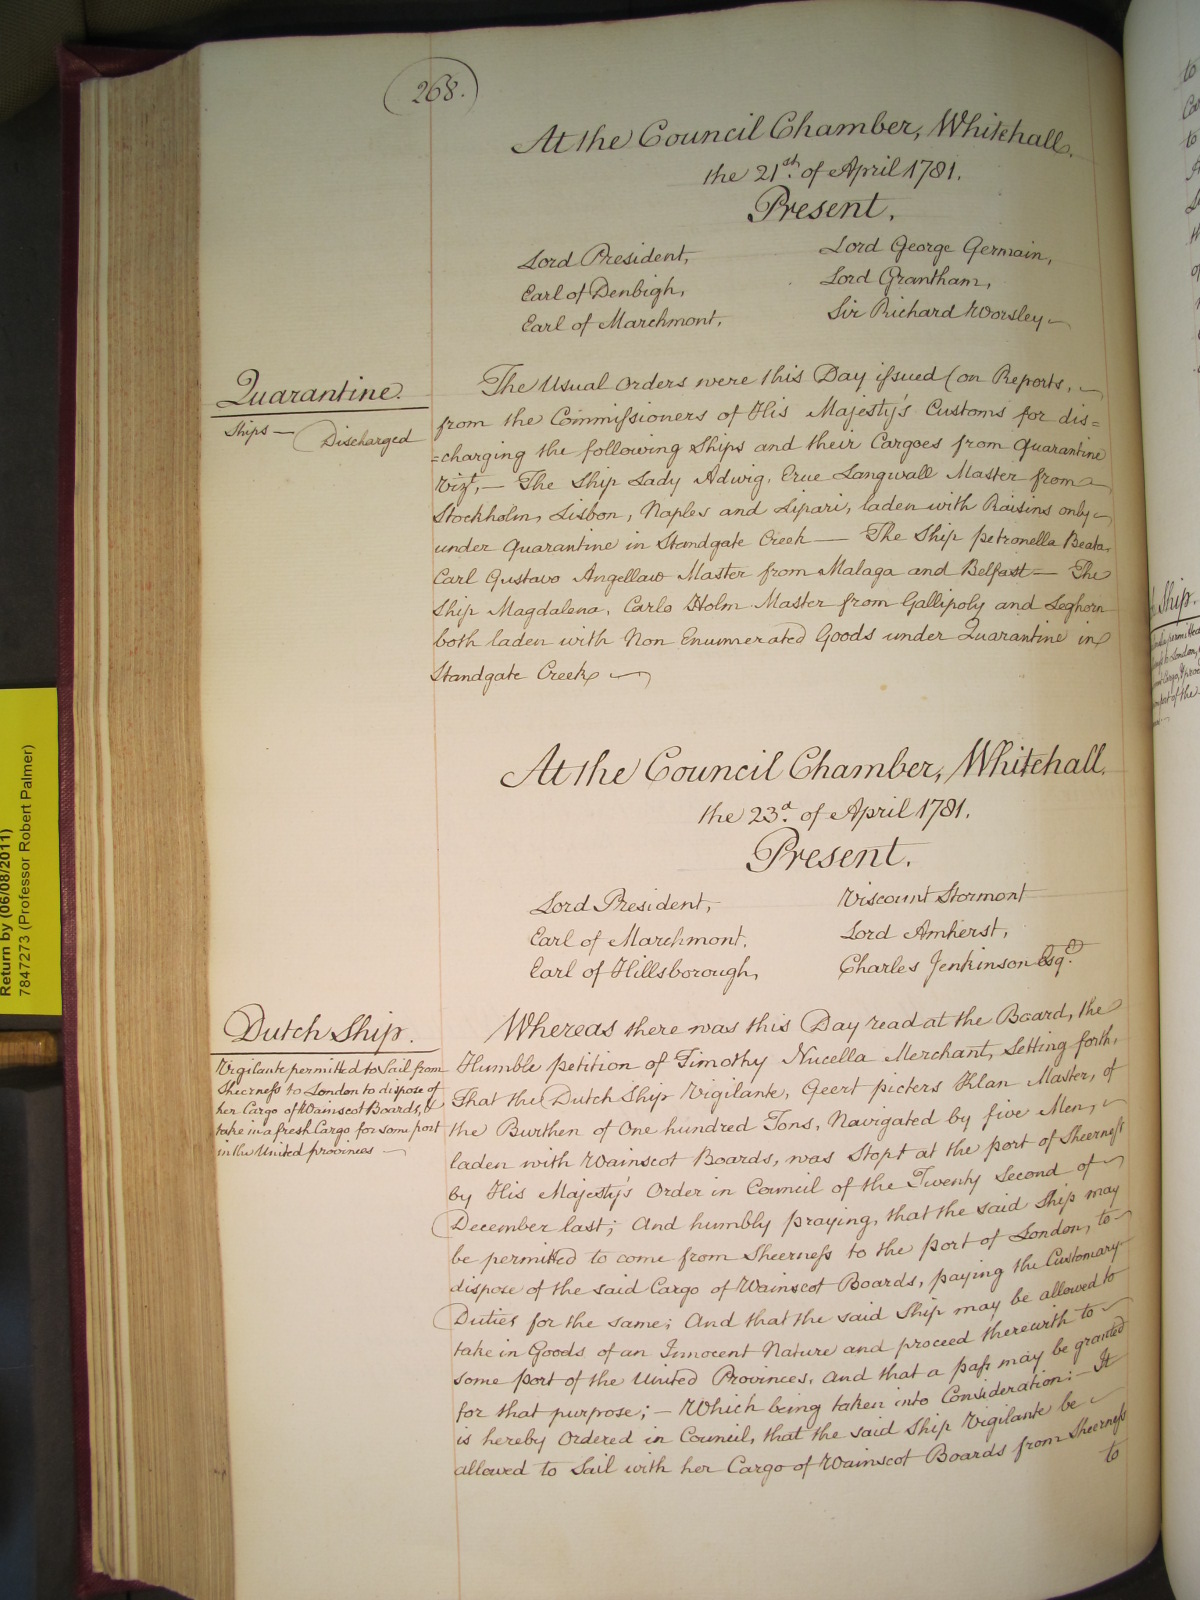 268.
At the Council Chamber, Whitehall.
the 21st. of April 1781.
Present.
Lord President,
Earl of Denbigh,
Earl of Marchmont,
Lord George Germain,
Lord Grantham,
Sir Richard Worsley
Quarantine.
Ships — Discharged
The Usual Orders were this Day issued (on Reports,
from the Commissioners of His Majesty's Customs for dis=
=charging the following Ships and their Cargoes from Quarantine
Vizt, — The Ship Lady Adwig, Erue Langwall Master from
Stockholm, Lisbon, Naples and Lipari, laden with Raisins only
under Quarantine in Standgate Creek — The Ship Petronella Beata,
Carl Gustavo Angellaw Master from Malaga and Belfast — The
Ship Magdalena, Carlo Holm Master from Gallipoly and Leghorn
both laden with Non Enumerated Goods under Quarantine in
Standgate Creek
At the Council Chamber, Whitehall.
the 23d. of April 1781.
Present.
Lord President,
Earl of Marchmont,
Earl of Hillsborough,
Viscount Stormont
Lord Amherst,
Charles Jenkinson Esqr.
Dutch Ship.
Vigilante permitted to Sail from
Sheerness to London to dispose of
her Cargo of Wainscot Boards, &
take in a fresh Cargo for some port
in the United provinces —
Whereas there was this Day read at the Board, the
Humble petition of Timothy Nucella Merchant, Setting forth,
That the Dutch Ship Vigilante, Geert picters Klan Master, of
the Burthen of One hundred Tons, Navigated by five Men,
laden with Wainscot Boards, was Stopt at the port of Sheerness
by His Majesty's Order in Council of the Twenty Second of
December last; And humbly praying, that the said Ship may
be permitted to come from Sheerness to the port of London, to
dispose of the said Cargo of Wainscot Boards, paying the Customary
Duties for the same; And that the said Ship may be allowed to
take in Goods of an Innocent Nature and proceed therewith to
some port of the United Provinces, and that a pass may be granted
for that purpose; — Which being taken into Consideration: — It
is hereby Ordered in Council, that the said Ship Vigilante be
allowed to Sail with her Cargo of Wainscot Boards from Sheerness
to
Return by (06/08/2011)
7847273 (Professor Robert Palmer)
Ship.